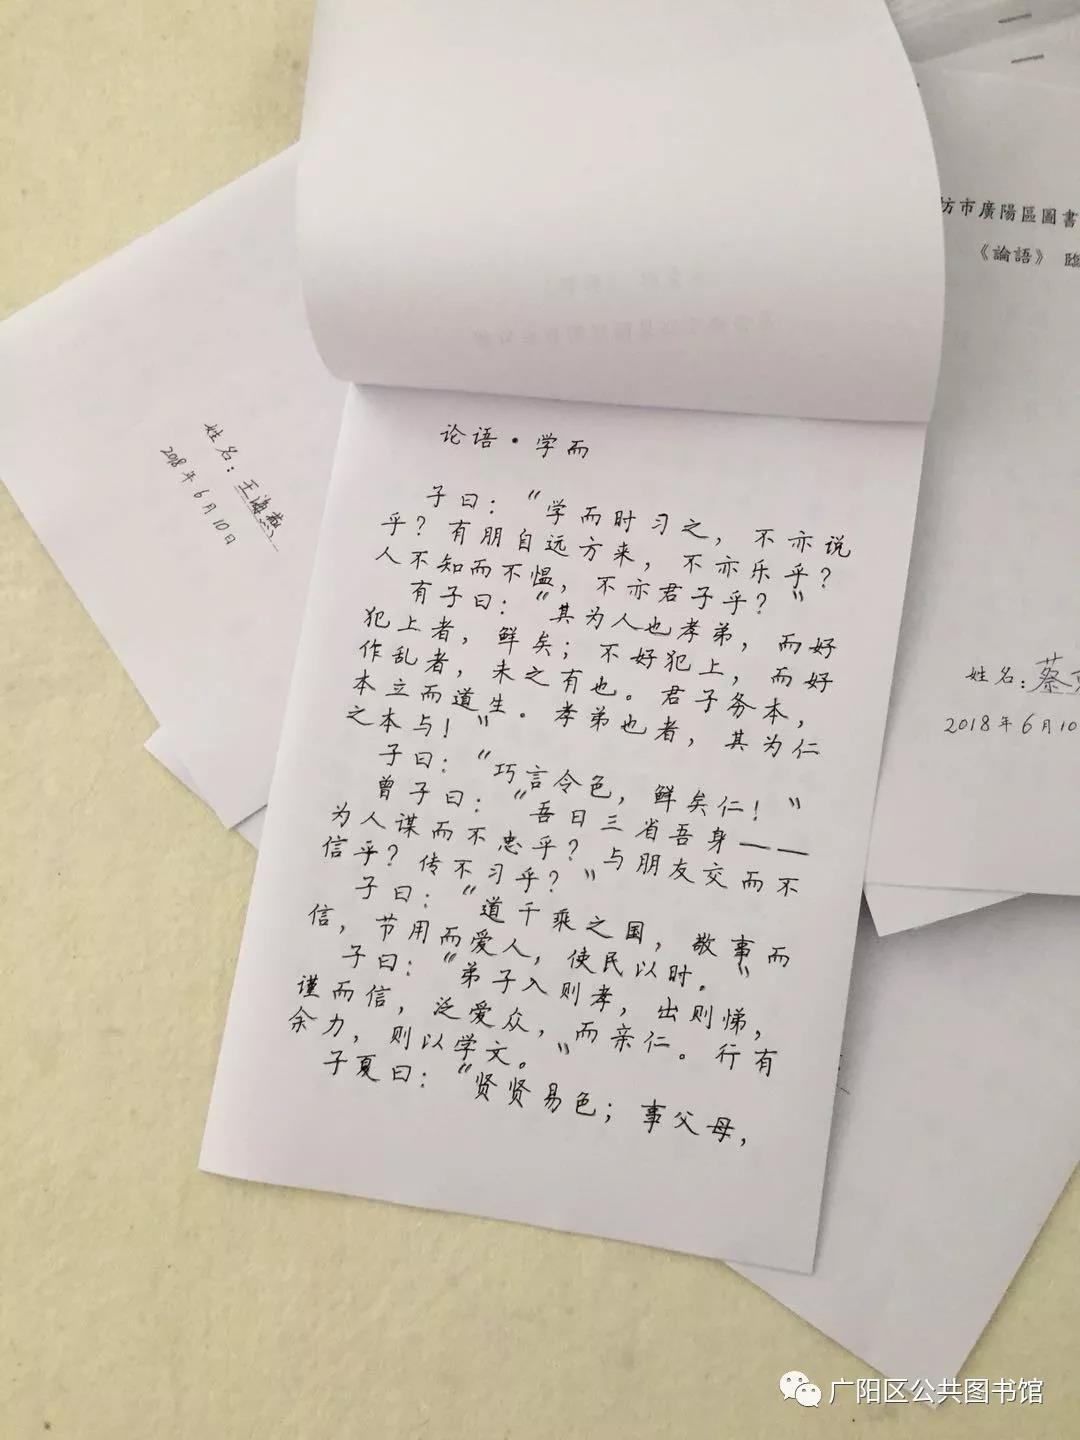 坊市廣陽區圖書
《論語》 臨
姓名：王海燕
2018年6月10日
论语·学而
子曰：“学而时习之，不亦说
乎？有朋自远方来，不亦乐乎？
人不知而不愠，不亦君子乎？”
有子曰：“其为人也孝弟，而好
犯上者，鲜矣；不好犯上，而好
作乱者，未之有也。君子务本，
本立而道生。孝弟也者，其为仁
之本与！”
子曰：“巧言令色，鲜矣仁！”
曾子曰：“吾日三省吾身——
为人谋而不忠乎？与朋友交而不
信乎？传不习乎？”
子曰：“道千乘之国，敬事而
信，节用而爱人，使民以时。”
子曰：“弟子入则孝，出则悌，
谨而信，泛爱众，而亲仁。行有
余力，则以学文。”
子夏曰：“贤贤易色；事父母，
姓名：蔡
2018年6月10
广阳区公共图书馆